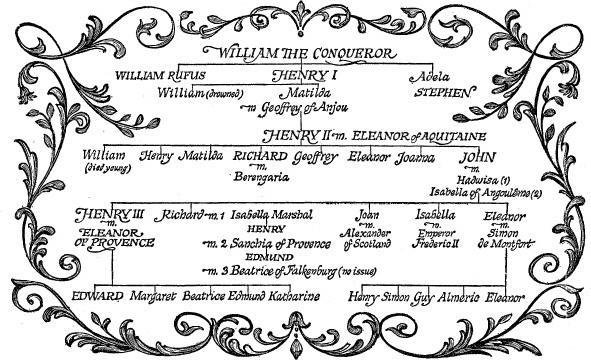 WILLIAM THE CONQUEROR
WILLIAM RUFUS HENRY I Adela
William (drowned) Matilda STEPHEN
m Geoffrey of Anjou
HENRY II m. ELEANOR of AQUITAINE
William Henry Matilda RICHARD Geoffrey Eleanor Joanna JOHN
(died young) m. m.
Berengaria Hadwisa (1)
Isabella of Angoulême (2)
HENRY III Richard m. 1 Isabella Marshal Joan Isabella Eleanor
m. HENRY m. m. m.
ELEANOR m. 2 Sanchia of Provence Alexander Emperor Simon
OF PROVENCE EDMUND of Scotland Frederic II de Montfort
m. 3 Beatrice of Falkenburg (no issue)
EDWARD Margaret Beatrice Edmund Katharine Henry Simon Guy Almeric Eleanor